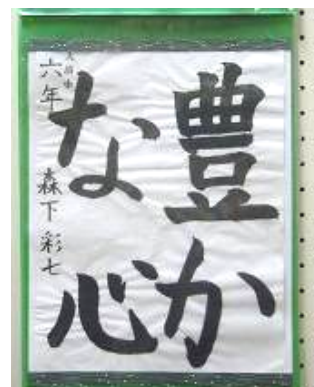 豊か
な心
六年 森下彩七